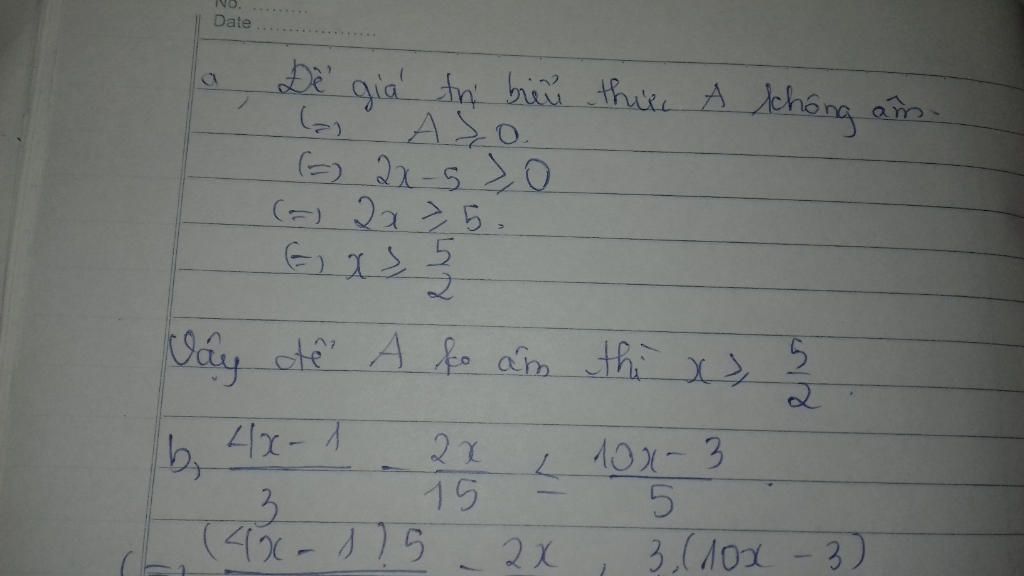 No. ..........
Date ....................
a, Để giá trị biểu thức A không âm.
(=) A ≥ 0.
(=) 2x - 5 ≥ 0
(=) 2x ≥ 5.
(=) x ≥ 5/2
Vậy để A ko âm thì x ≥ 5/2.
b, (4x - 1)/3 - 2x/15 ≤ (10x - 3)/5.
(=) (4x - 1).5 - 2x 3.(10x - 3)